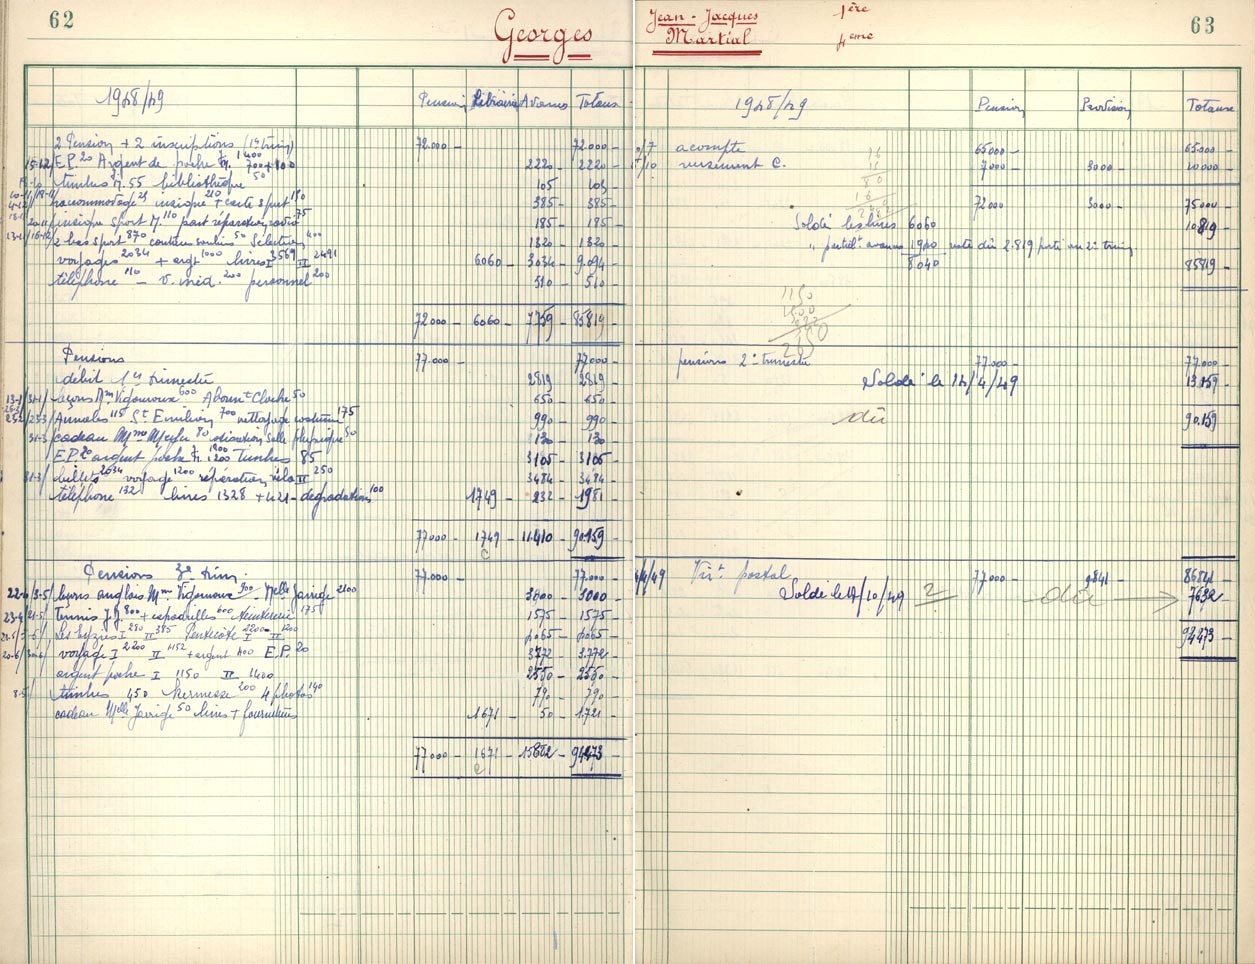 62
Georges
1948/49 Pension Librairie Avances Totaux
2 Pension + 2 inscriptions (1er trim) 72.000 - 72.000 -
15-12 E.P. 20 Argent de poche 1400 700 + 100 2220 - 2220 -
timbres 55 bibliothèque 50 105 105 -
raccommodage 25 insigne 210 + carte sport 150 385 - 385 -
insigne sport M. 110 part réparation radio 75 185 - 185 -
2 bas sport 870 couture 50 Selection 400 1320 - 1320 -
voyages 2034 + argt 1000 livres I 3569 II 2491 6060 - 3034 - 9.094 -
téléphone 110 - v. méd. 200 personnel 200 510 - 510 -
72.000 - 6060 - 7759 - 85819 -
Pensions 77.000 - 77.000 -
débit 1er trimestre 2819 - 2819 -
leçons Mme Vigouroux 600 Abonnt Cloche 50 650 - 650 -
Annales 115 St Emilion 700 nettoyage costume 175 990 - 990 -
31-3 cadeau Mme Meyer 80 cotisation salle physique 50 130 - 130 -
E.P. 20 argent poche 1800 1200 timbres 85 3105 - 3105 -
31-3 billets 2034 voyage 1200 réparation vélo II 250 3484 - 3484 -
téléphone 132 livres 1328 + 421 - dégradations 100 1749 - 232 - 1981 -
77000 - 1749 - 11.410 - 90.159 -
C
Pensions 3e trim. 77.000 - 77.000 -
leçons anglais Mme Vigouroux 900 - Melle Jarrige 2100 3000 - 3000 -
Tennis J.J. 800 + espadrilles 600 teinturerie 175 1575 - 1575 -
Les Eyzies I 280 II 385 Pentecôte I 2200 - II 1200
voyage I 2200 II 1152 + argent 400 E.P. 20 3772 - 3.772 -
argent poche I 1150 II 1400 2550 - 2550 -
8-5 timbres 450 kermesse 200 4 photos 140 790 - 790 -
cadeau Melle Jarrige 50 livres + fournitures 1671 - 50 - 1.721 -
77000 - 1671 - 15802 - 94473 -
C
63
Jean-Jacques 1ère
Martial 4ème
1948/49 Pension Provision Totaux
acompte 65000 - 65000 -
versement C. 7000 - 3000 - 10000 -
72000 - 3000 - 75000 -
Solde livres 6060 10819 -
" partiel avances 1980 reste dû 2.819 porté au 2e trim.
8040 85819 -
1150
1500
2650
pensions 2e trimestre 77.000 - 77.000 -
Soldé le 14/4/49 13.159 -
dû 90.159 -
Virt postal 77000 - 9841 - 86841 -
Soldé le 17/10/49 ? dû 7632 -
94473 -